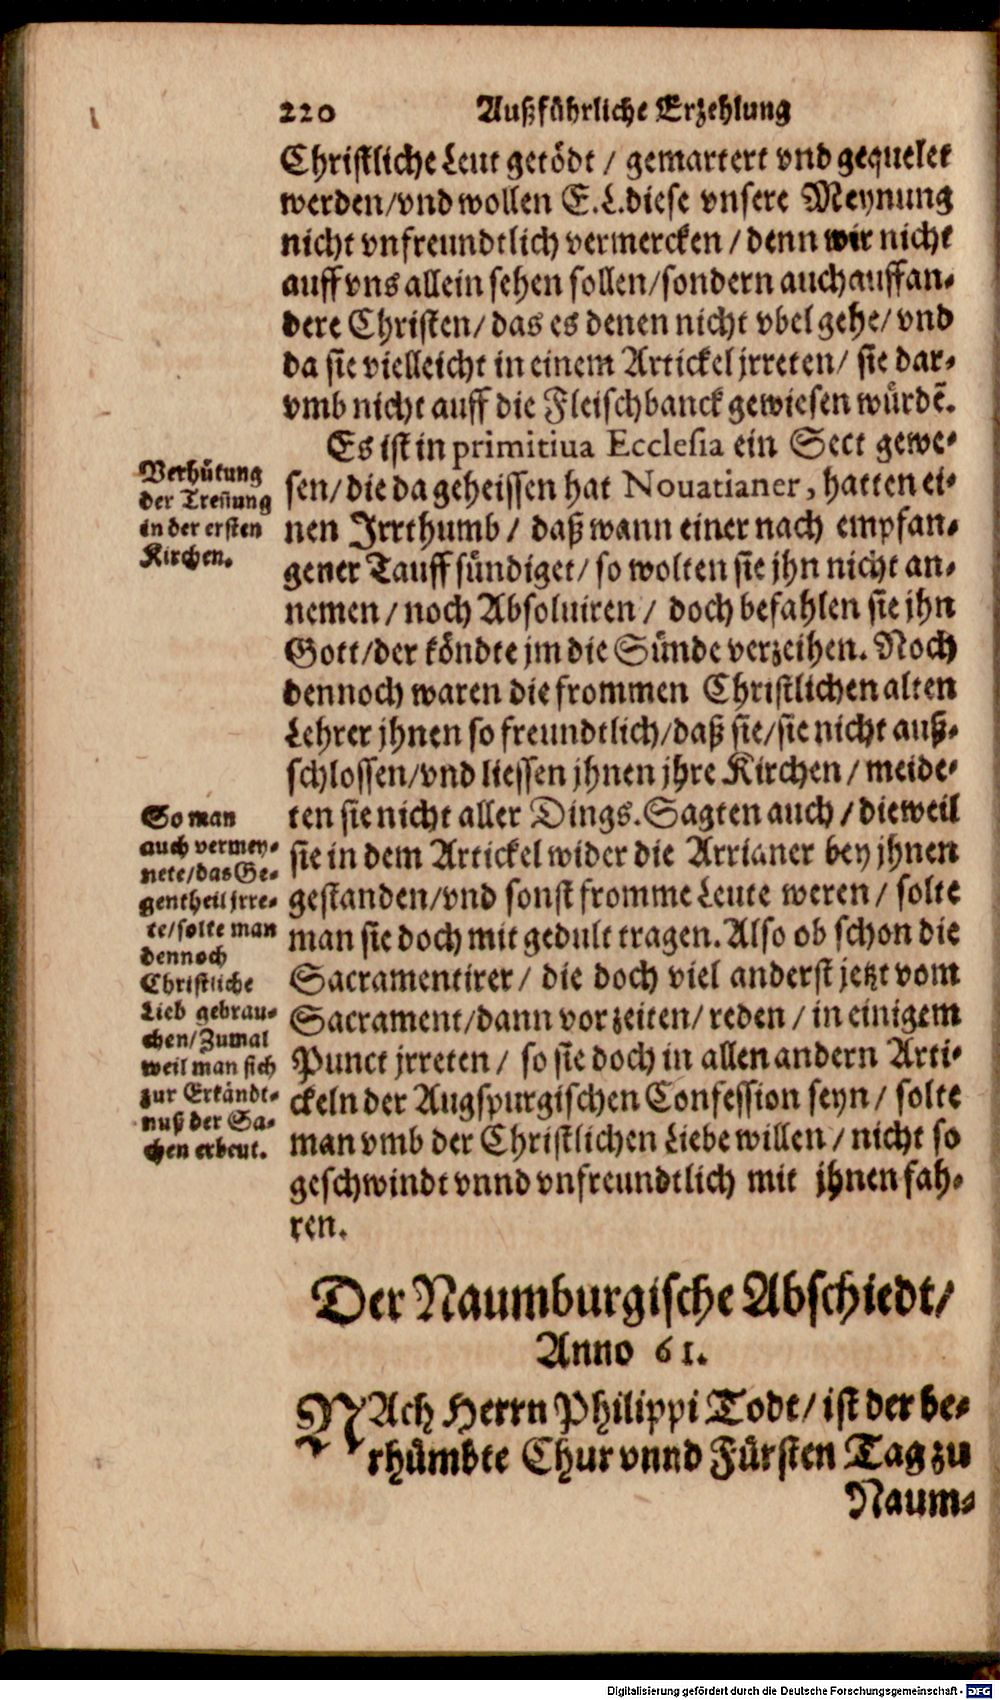 220 Außführliche Erzehlung
Christliche Leut getödt / gemartert vnd gequelet
werden/vnd wollen E.L.diese vnsere Meynung
nicht vnfreundtlich vermercken / denn wir nicht
auff vns allein sehen sollen/sondern auch auff an-
dere Christen/ das es denen nicht vbel gehe/ vnd
da sie vielleicht in einem Artickel jrreten/ sie dar-
vmb nicht auff die Fleischbanck gewiesen würdē.
Es ist in primitiua Ecclesia ein Sect gewe-
sen/ die da geheissen hat Nouatianer, hatten ei-
nen Irrthumb / daß wann einer nach empfan-
gener Tauff sündiget/ so wolten sie jhn nicht an-
nemen / noch Absoluiren / doch befahlen sie jhn
Gott/der köndte jm die Sünde verzeihen. Noch
dennoch waren die frommen Christlichen alten
Lehrer jhnen so freundtlich/daß sie/sie nicht auß-
schlossen/vnd liessen jhnen jhre Kirchen / meide-
ten sie nicht aller Dings. Sagten auch / dieweil
sie in dem Artickel wider die Arrianer bey jhnen
gestanden/vnd sonst fromme Leute weren / solte
man sie doch mit gedult tragen. Also ob schon die
Sacramentirer / die doch viel anderst jetzt vom
Sacrament/dann vor zeiten/ reden / in einigem
Punct jrreten / so sie doch in allen andern Arti-
ckeln der Augspurgischen Confession seyn / solte
man vmb der Christlichen Liebe willen / nicht so
geschwindt vnnd vnfreundtlich mit jhnen fah-
ren.
Verhütung
der Treñung
in der ersten
Kirchen.
So man
auch vermey-
nete/das Ge-
gentheil jrre-
te/solte man
dennoch
Christliche
Lieb gebrau-
chen/Zumal
weil man sich
zur Erkändt-
nuß der Sa-
chen erbeut.
Der Naumburgische Abschiedt/
Anno 61.
NAch Herrn Philippi Todt/ ist der be-
rhümbte Chur vnnd Fürsten Tag zu
Naum-
Digitalisierung gefördert durch die Deutsche Forschungsgemeinschaft - DFG